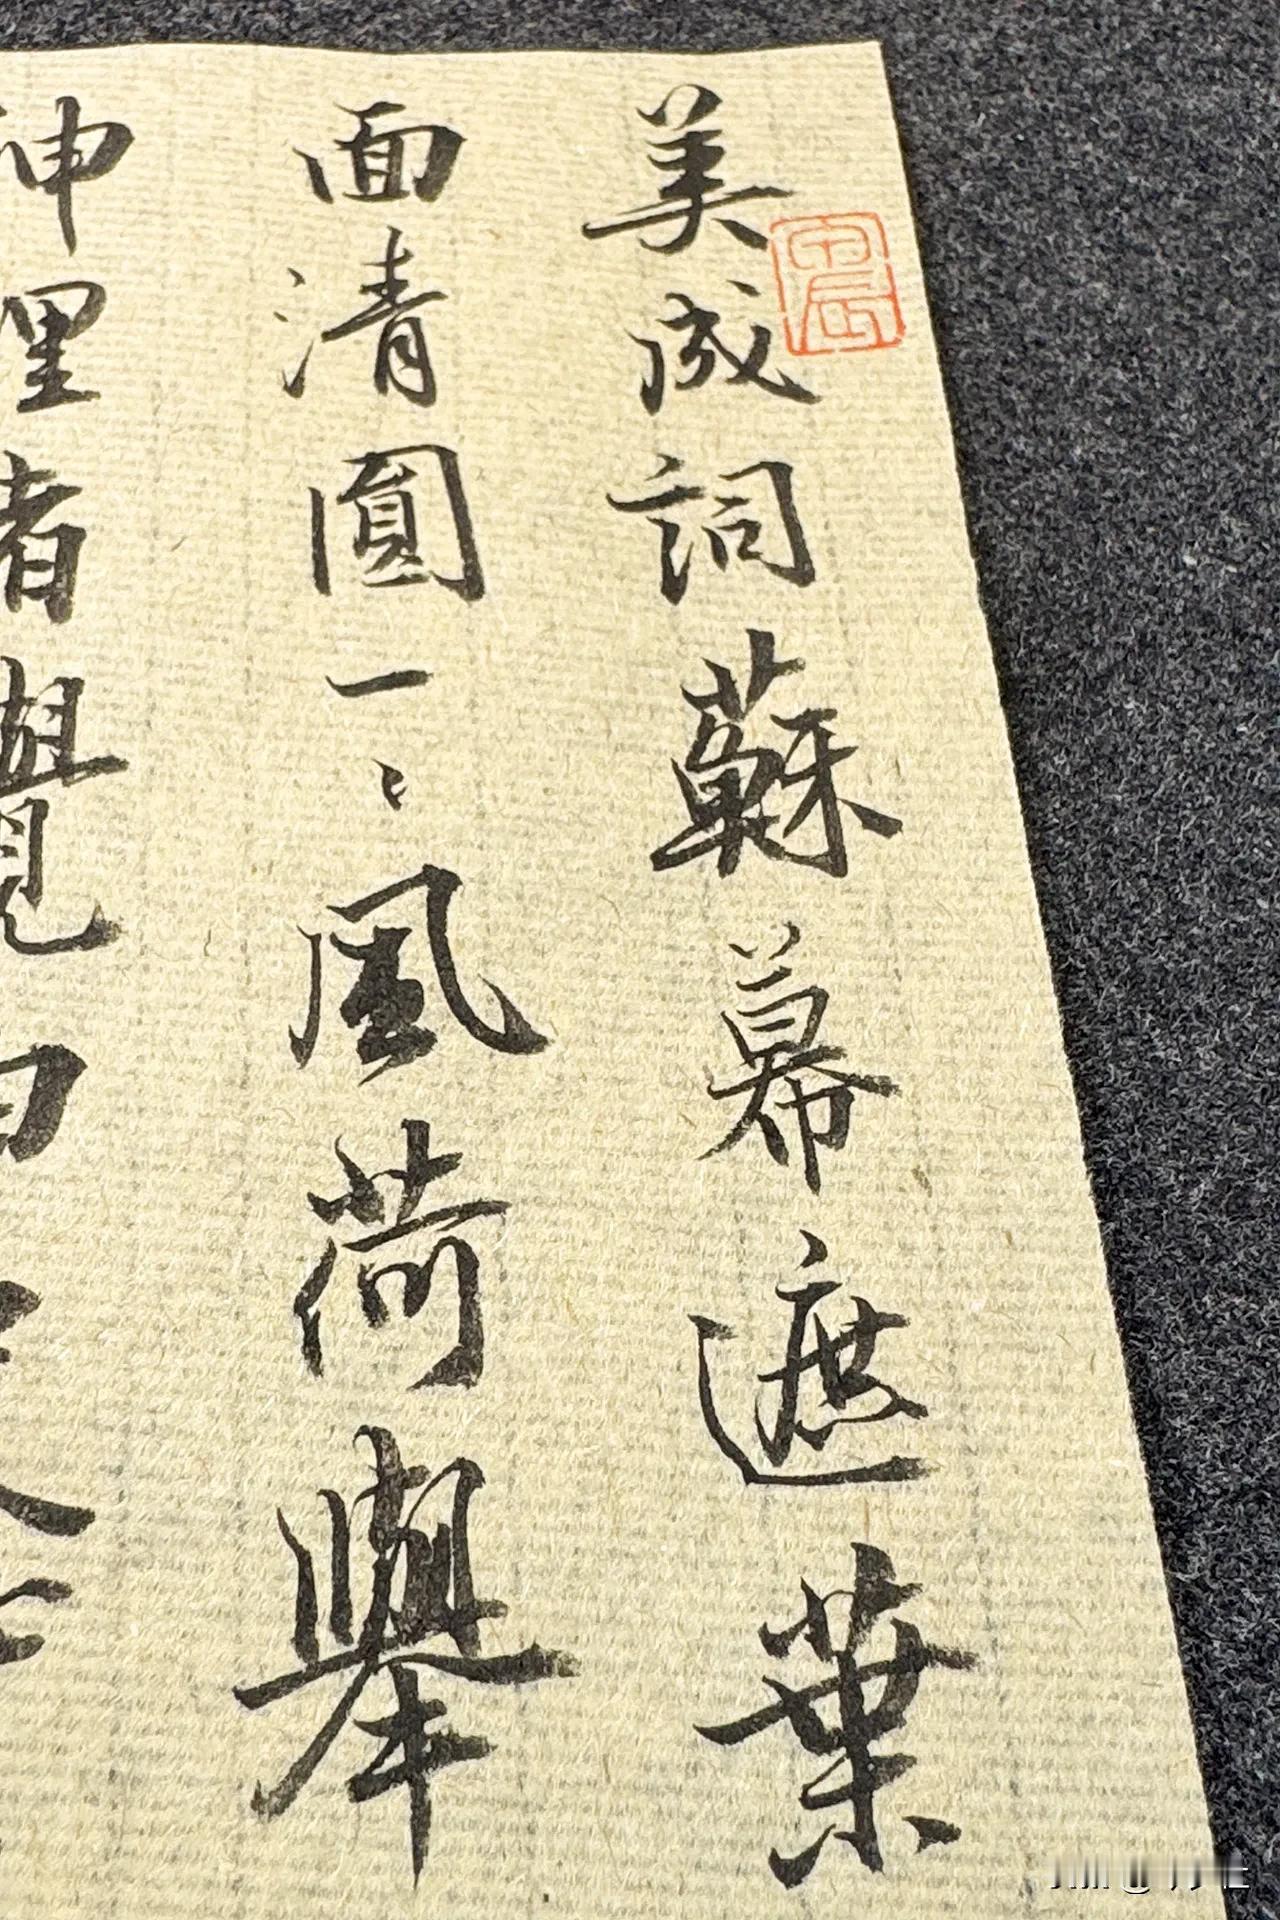 美成詞蘇幕遮葉
面清圓一〻風荷舉
神理者覺白